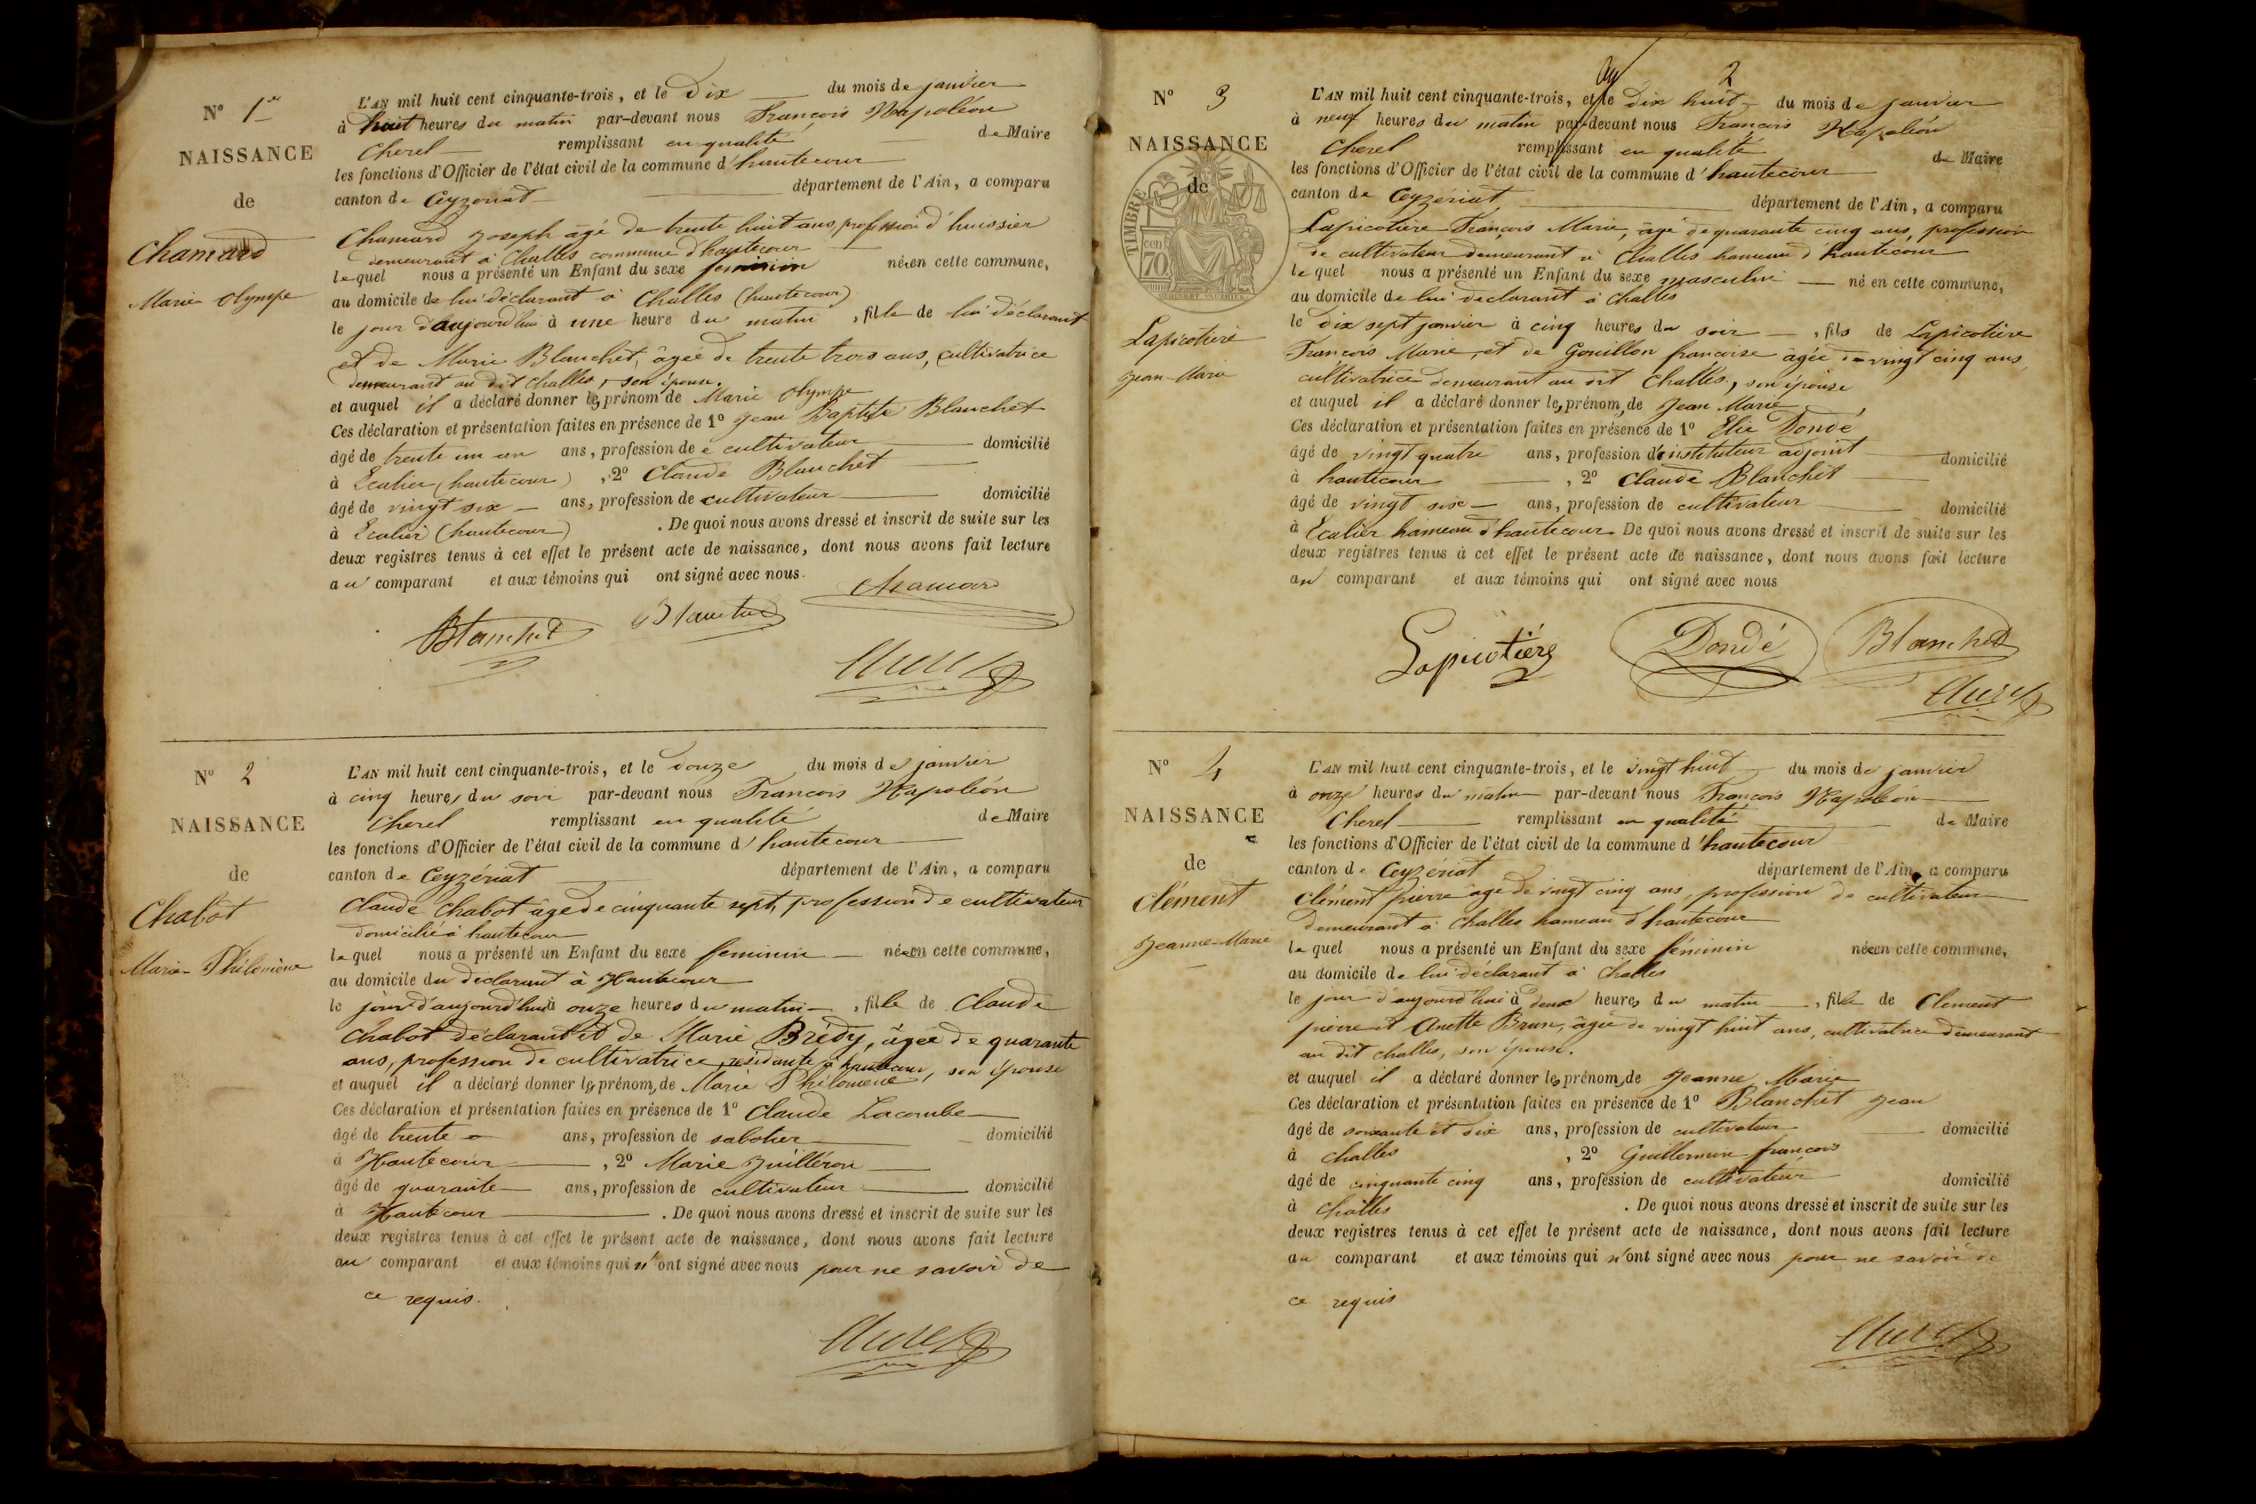 N° 1er
NAISSANCE
de
Chamard
Marie Olympe
L'AN mil huit cent cinquante-trois, et le Dix du mois de janvier
à huit heures du matin par-devant nous François Napoléon
Cherel remplissant en qualité de Maire
les fonctions d'Officier de l'état civil de la commune d'hautecour
canton de Ceyzériat département de l'Ain, a comparu
Chamard Joseph âgé de trente huit ans, profession d'huissier
demeurant à Challes commune d'hautecour
lequel nous a présenté un Enfant du sexe feminin née en cette commune,
au domicile de lui déclarant à Challes (hautecour)
le jour d'aujourd'hui à une heure du matin, fille de lui déclarant
et de Marie Blanchet, âgée de trente trois ans, cultivatrice
demeurant au dit Challes, son épouse.
et auquel il a déclaré donner les prénom de Marie Olympe
Ces déclaration et présentation faites en présence de 1° Jean Baptiste Blanchet
âgé de trente un an ans, profession de cultivateur domicilié
à Ecalier (hautecour), 2° Claude Blanchet
âgé de vingt six ans, profession de cultivateur domicilié
à Ecalier (hautecour). De quoi nous avons dressé et inscrit de suite sur les
deux registres tenus à cet effet le présent acte de naissance, dont nous avons fait lecture
au comparant et aux témoins qui ont signé avec nous.
Chamard
Blanchet Blanchet
Cherel
N° 2
NAISSANCE
de
Chabot
Marie Philomène
L'AN mil huit cent cinquante-trois, et le douze du mois de janvier
à cinq heures du soir par-devant nous François Napoléon
Cherel remplissant en qualité de Maire
les fonctions d'Officier de l'état civil de la commune d'hautecour
canton de Ceyzériat département de l'Ain, a comparu
Claude Chabot âgé de cinquante sept, profession de cultivateur
domicilié à hautecour
lequel nous a présenté un Enfant du sexe feminin née en cette commune,
au domicile du déclarant à Hautecour
le jour d'aujourd'hui à onze heures du matin, fille de Claude
Chabot déclarant et de Marie Brédy, âgée de quarante
ans, profession de cultivatrice, résidante à hautecour, son épouse
et auquel il a déclaré donner les prénom, de Marie Philomène
Ces déclaration et présentation faites en présence de 1° Claude Lacombe
âgé de trente ans, profession de sabotier domicilié
à Hautecour, 2° Marie Juilléron
âgé de quarante ans, profession de cultivateur domicilié
à Hautecour. De quoi nous avons dressé et inscrit de suite sur les
deux registres tenus à cet effet le présent acte de naissance, dont nous avons fait lecture
au comparant et aux témoins qui n'ont signé avec nous pour ne savoir de
ce requis.
Cherel
2
N° 3
NAISSANCE
de
TIMBRE
cen 70
Lapicotière
Jean-Marie
L'AN mil huit cent cinquante-trois, et le dix huit du mois de janvier
à neuf heures du matin par-devant nous François Napoléon
Cherel remplissant en qualité de Maire
les fonctions d'Officier de l'état civil de la commune d'hautecour
canton de Ceyzériat département de l'Ain, a comparu
Lapicotière François Marie, âgé de quarante cinq ans, profession
de cultivateur demeurant à Challes hameau d'hautecour
lequel nous a présenté un Enfant du sexe masculin né en cette commune,
au domicile de lui déclarant à Challes
le dix sept janvier à cinq heures du soir, fils de Lapicotière
François Marie, et de Gouillon françoise âgée de vingt cinq ans,
cultivatrice demeurant au dit Challes, son épouse
et auquel il a déclaré donner les prénom, de Jean Marie
Ces déclaration et présentation faites en présence de 1° Elie Dondé
âgé de vingt quatre ans, profession d'instituteur adjoint domicilié
à hautecour, 2° Claude Blanchet
âgé de vingt six ans, profession de cultivateur domicilié
à Ecalier hameau d'hautecour. De quoi nous avons dressé et inscrit de suite sur les
deux registres tenus à cet effet le présent acte de naissance, dont nous avons fait lecture
au comparant et aux témoins qui ont signé avec nous
Lapicotière Dondé Blanchet
Cherel
N° 4
NAISSANCE
de
Clément
Jeanne-Marie
L'AN mil huit cent cinquante-trois, et le vingt huit du mois de janvier
à onze heures du matin par-devant nous François Napoléon
Cherel remplissant en qualité de Maire
les fonctions d'Officier de l'état civil de la commune d'hautecour
canton de Ceyzériat département de l'Ain, a comparu
Clément pierre âgé de vingt cinq ans, profession de cultivateur
demeurant à Challes hameau d'hautecour
lequel nous a présenté un Enfant du sexe féminin née en cette commune,
au domicile de lui déclarant à Challes
le jour d'aujourd'hui à deux heures du matin, fille de Clement
pierre et Anette Brun, âgée de vingt huit ans, cultivatrice demeurant
au dit challes, son épouse.
et auquel il a déclaré donner les prénom, de Jeanne Marie
Ces déclaration et présentation faites en présence de 1° Blanchet Jean
âgé de soixante et dix ans, profession de cultivateur domicilié
à challes, 2° Guillermin françois
âgé de cinquante cinq ans, profession de cultivateur domicilié
à challes. De quoi nous avons dressé et inscrit de suite sur les
deux registres tenus à cet effet le présent acte de naissance, dont nous avons fait lecture
au comparant et aux témoins qui n'ont signé avec nous pour ne savoir de
ce requis
Cherel